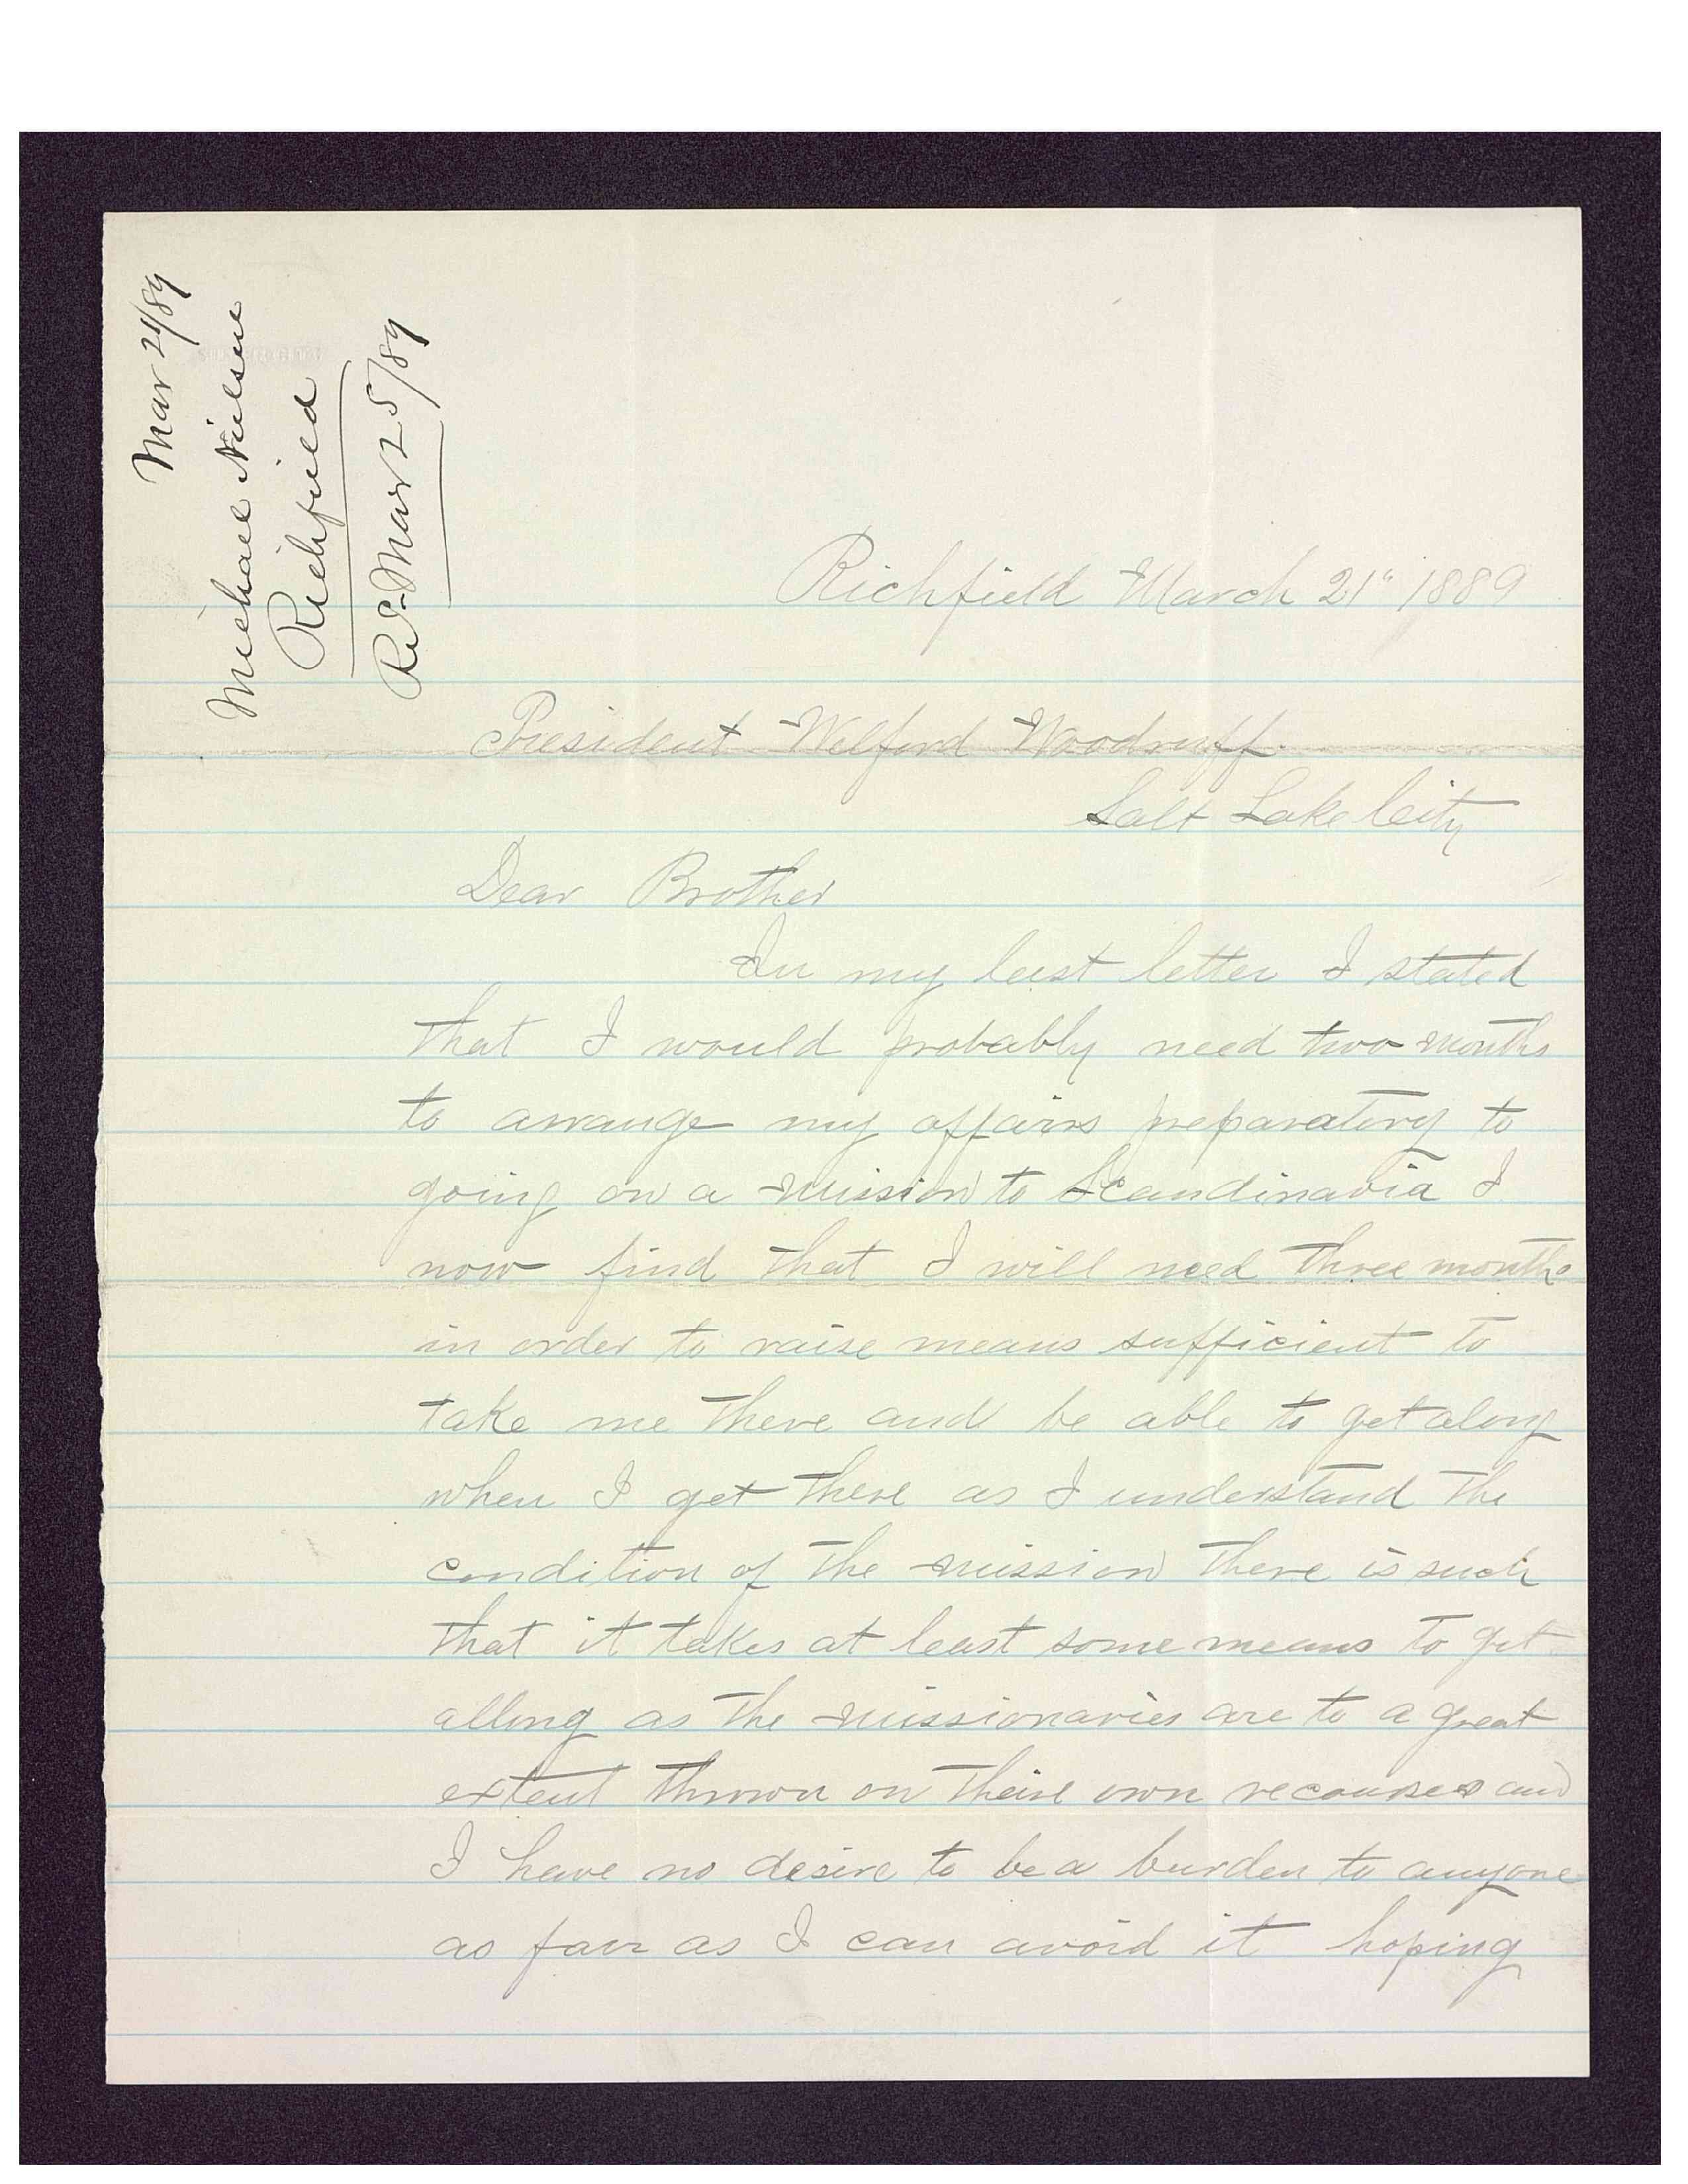 Mar 21/89
Michael Nielsen
Richfield
Rd. Mar 25/89
Richfield March 21" 1889
President Wilford Woodruff.
Salt Lake City
Dear Brother
In my last letter I stated
that I would probably need two months
to arrange my affairs preparatory to
going on a mission to Scandinavia I
now find that I will need three months
in order to raise means sufficient to
take me there and be able to get along
when I get there as I understand the
condition of the mission there is such
that it takes at least some means to get
allong as the missionaries are to a great
extent thrown on their own recourses and
I have no desire to be a burden to anyone
as farr as I can avoid it hoping